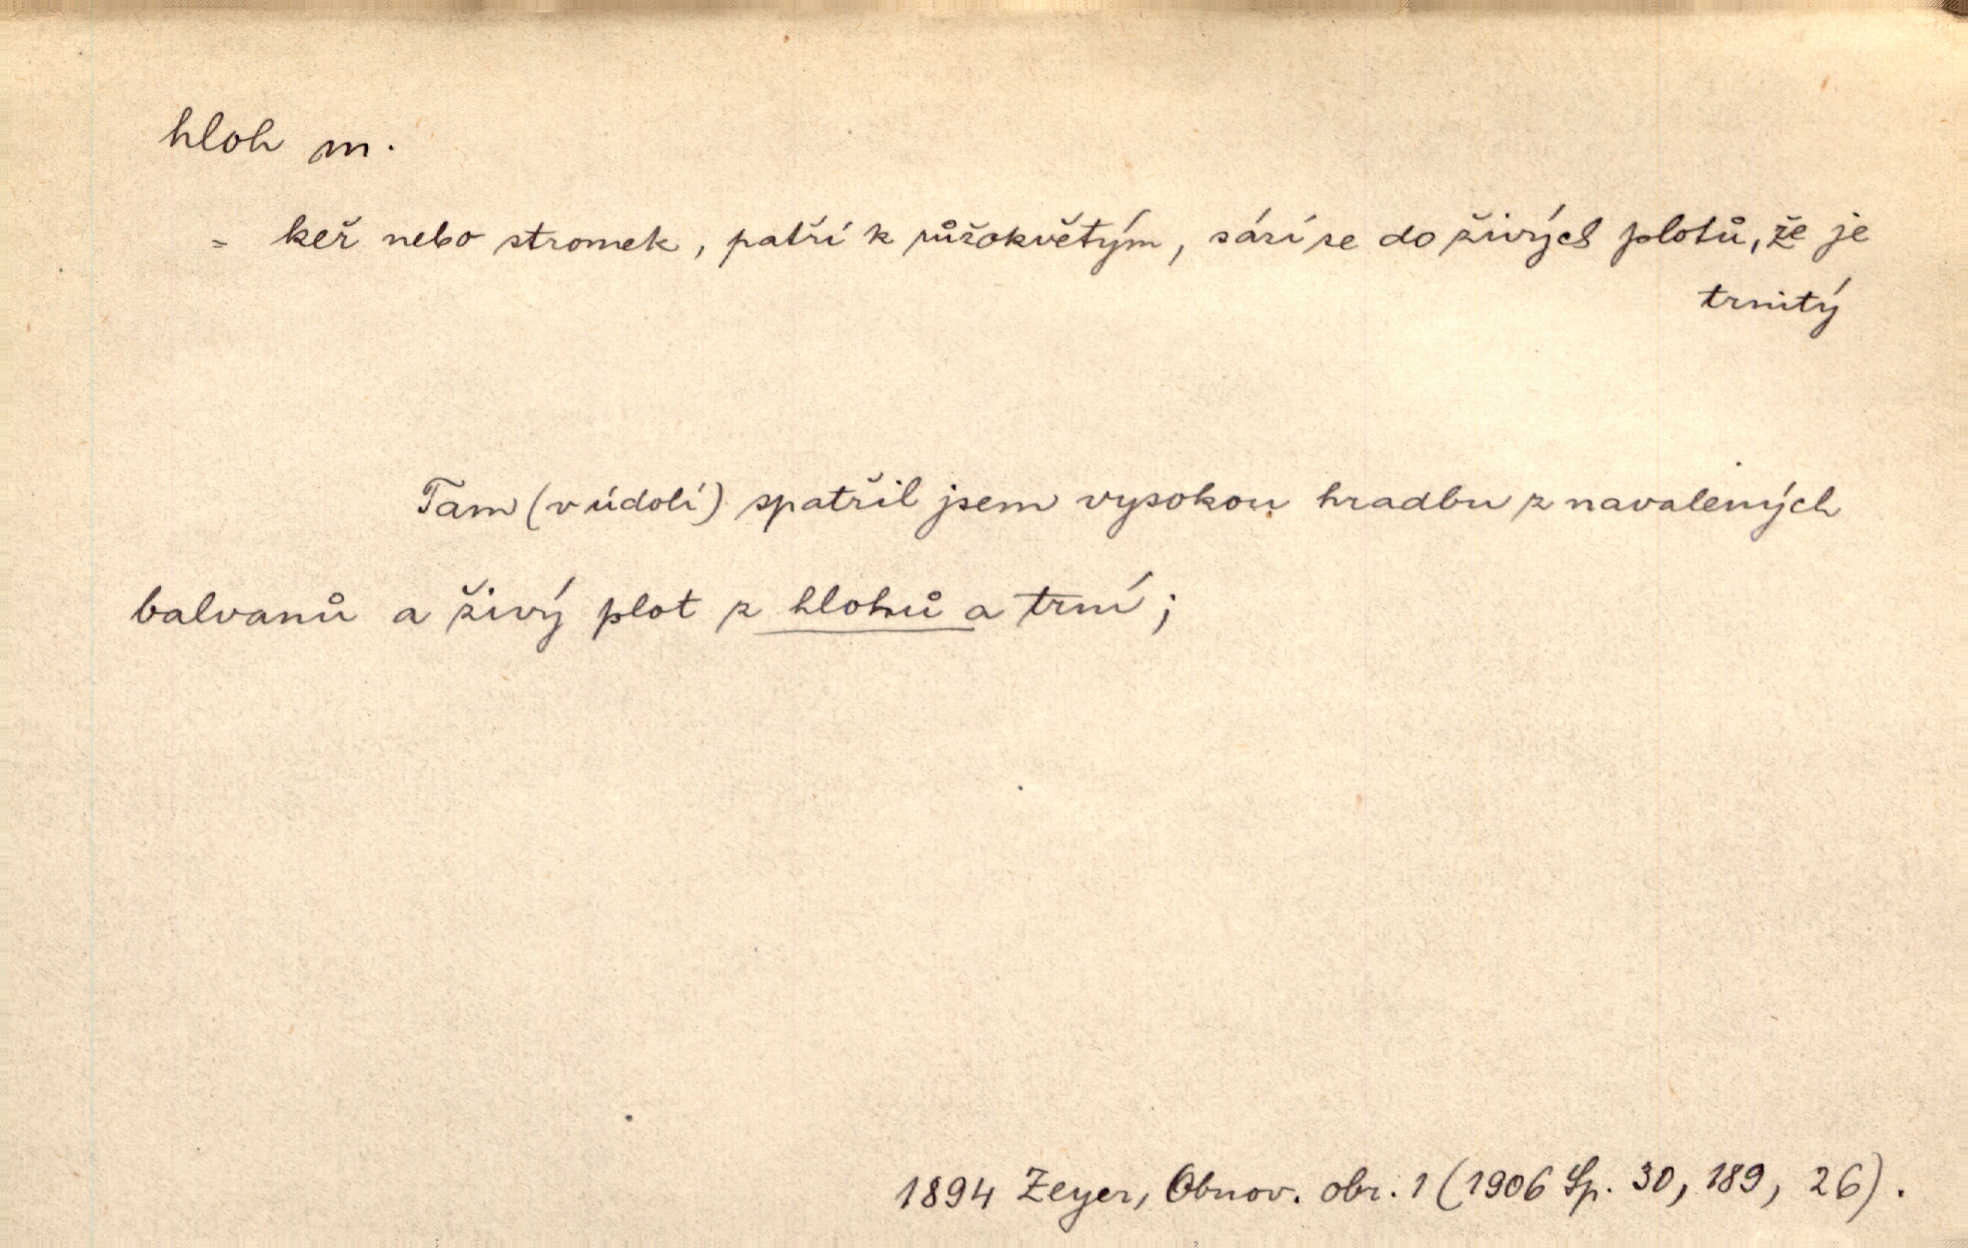 hloh m.
= keř nebo stromek, patří k růžokvětým, sází se do živých plotů, že je
trnitý
Tam (v údolí) spatřil jsem vysokou hradbu z navalených
balvanů a živý plot z hlohů a trní;
1894 Zeyer, Obnov. obr. 1 (1906 Sp. 30, 189, 26).